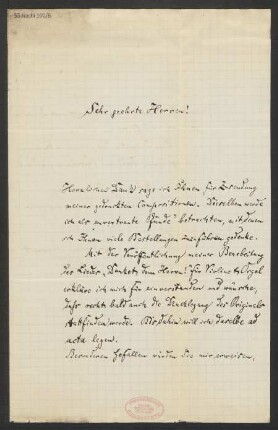 Sehr geehrte Herren!
Herzlichen Dank sage ich Ihnen für Zusendung
meiner gedruckten Compositionen. Dieselben werde
ich als anvertraute "Pfunde" betrachten, mit denen
ich Ihnen viele Bestellungen zuzuführen gedenke.
Mit der Veröffentlichung meiner Bearbeitung
des Liedes, "Danket dem Herrn" für Violine & Orgel
erkläre ich mich für einverstanden und wünsche,
daß recht bald auch die Drucklegung des Originals
stattfinden werde. Bis dahin will ich dasselbe ad
acta legen.
Besonderen Gefallen würden Sie mir erweisen,